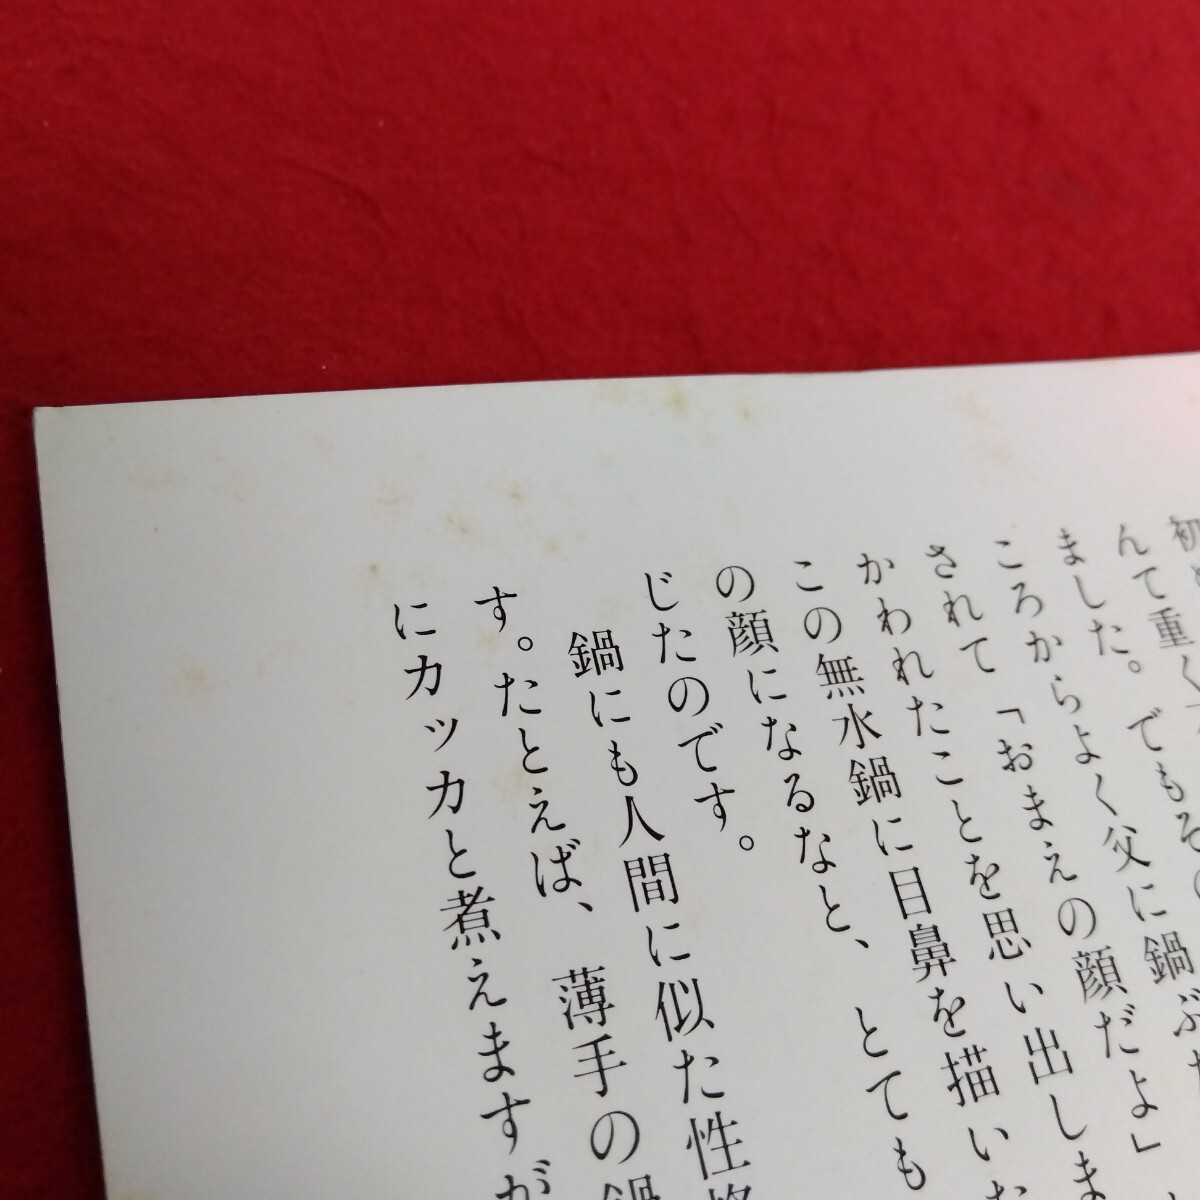 初
んて重く
ました。でもその
ころからよく父に鍋ぶた
されて「おまえの顔だよ」
かわれたことを思い出しま
この無水鍋に目鼻を描い
の顔になるなと、とても
じたのです。
鍋にも人間に似た性格
す。たとえば、薄手の鍋
にカッカと煮えますが